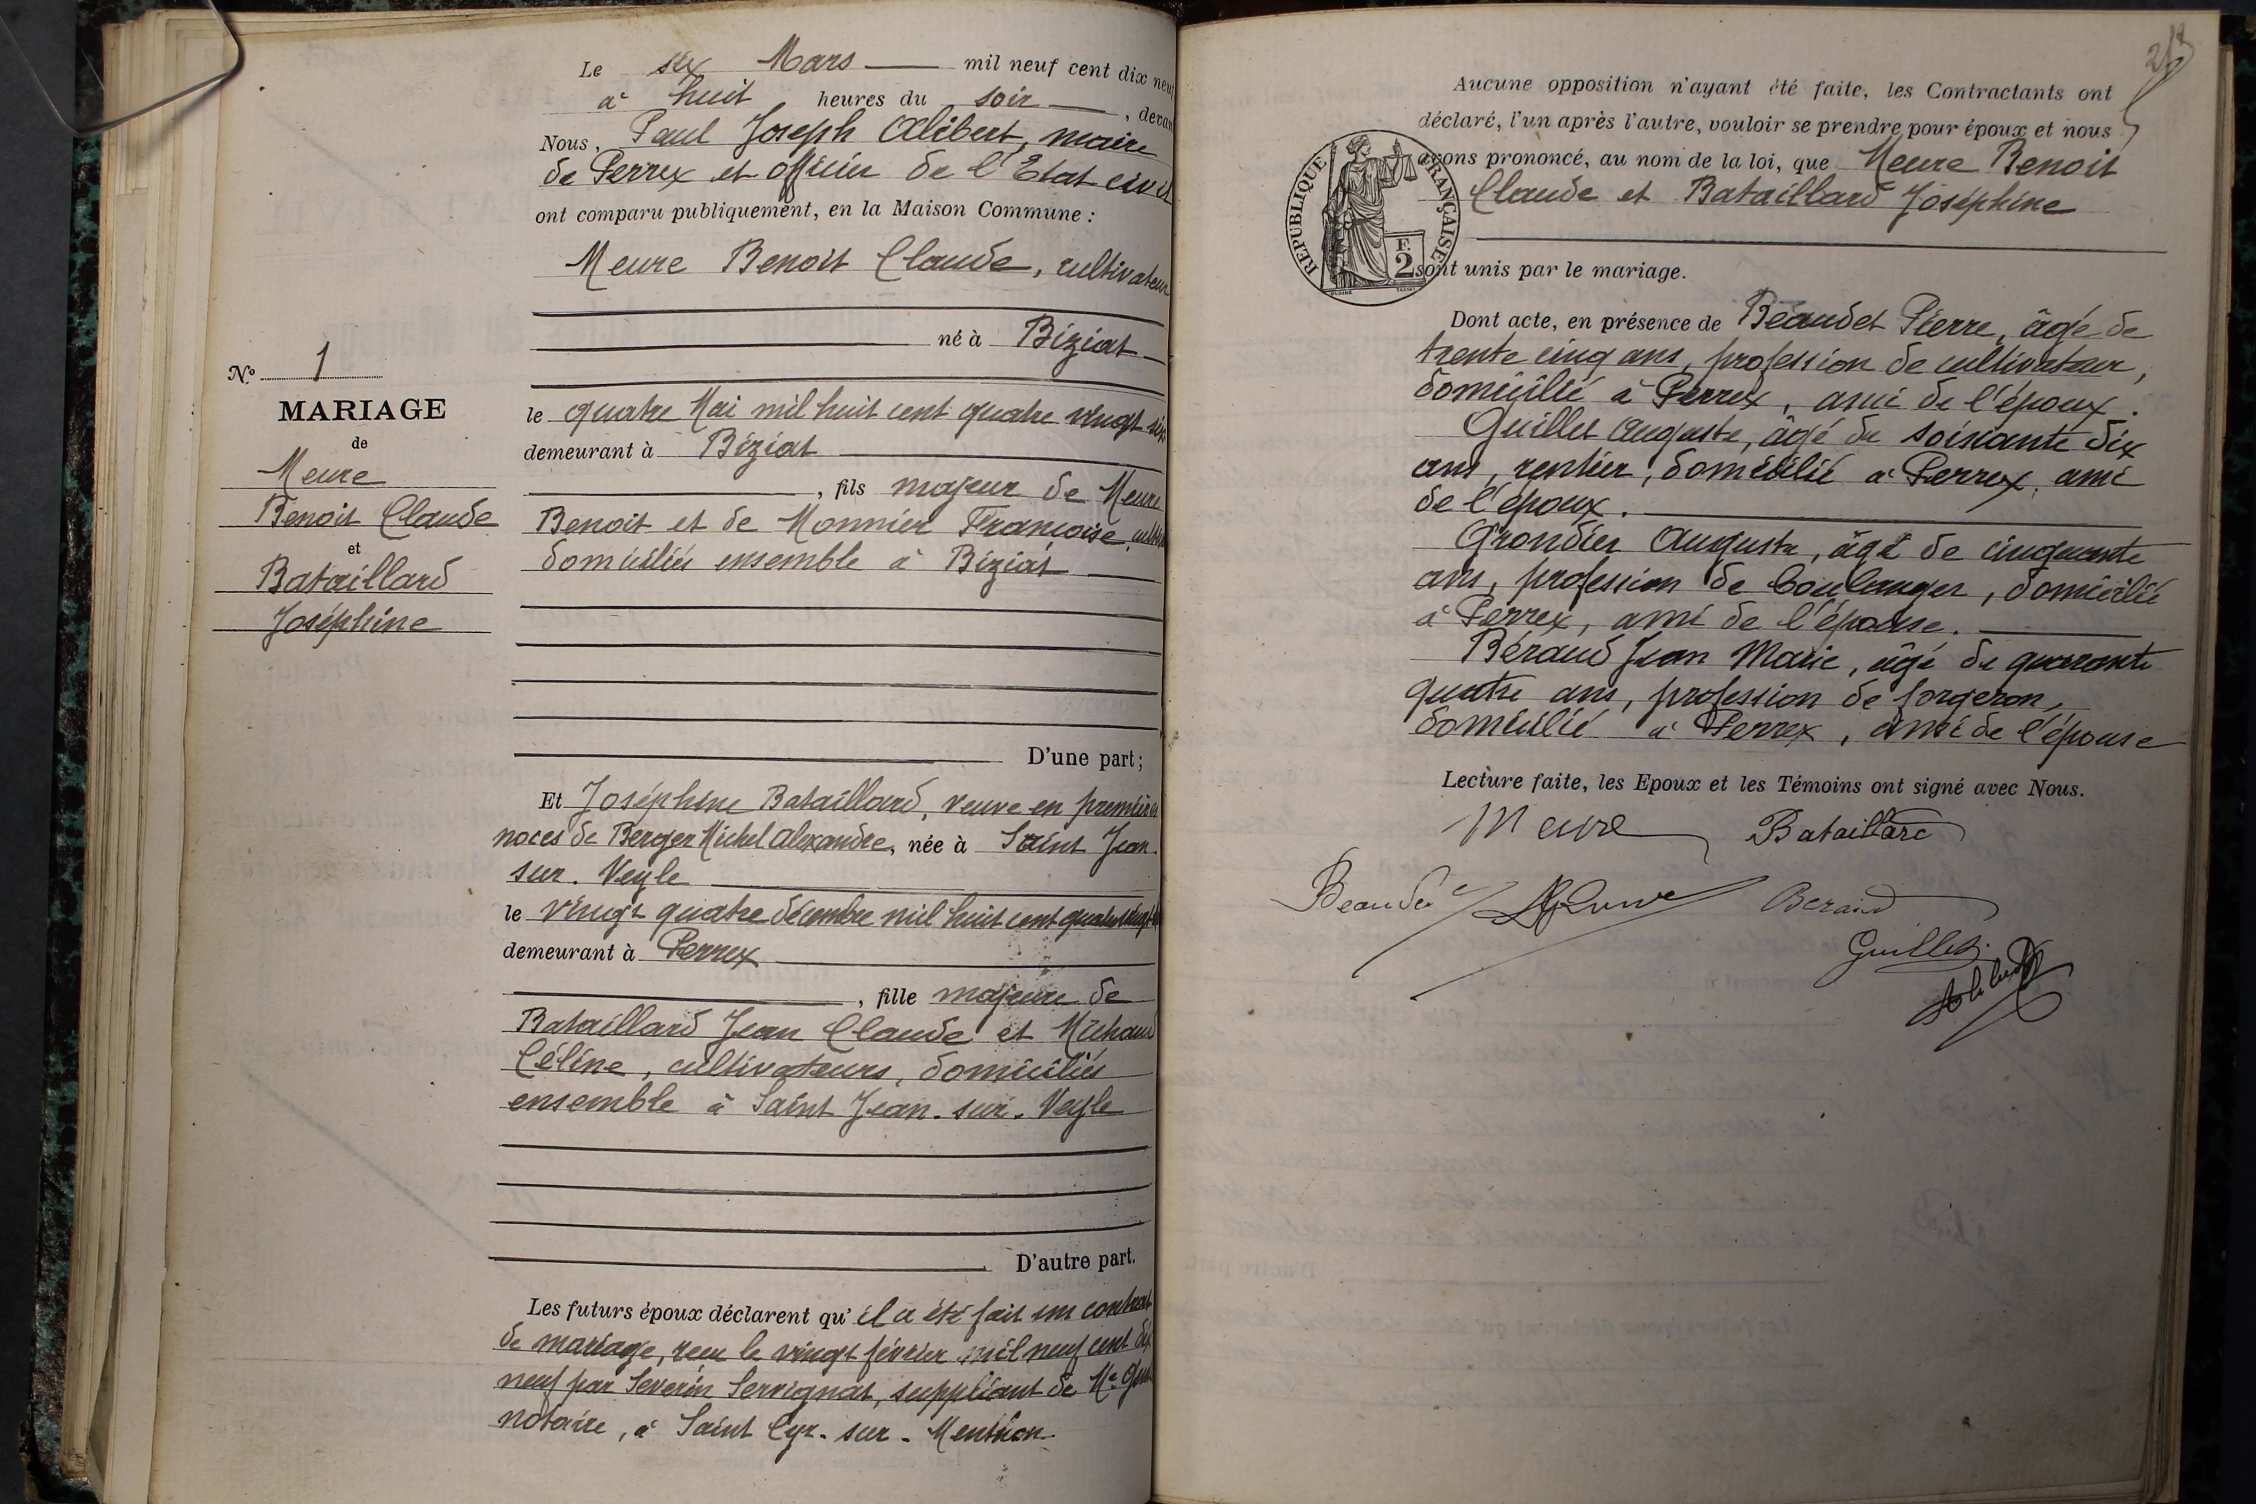 Le six Mars mil neuf cent dix neuf
à huit heures du soir, devant
Nous, Paul Joseph Alibert, maire
de Perrex et officier de l'Etat civil
ont comparu publiquement, en la Maison Commune :
Meure Benoit Claude, cultivateur
né à Biziat
le quatre Mai mil huit cent quatre vingt six
demeurant à Biziat
, fils majeur de Meure
Benoit et de Monnier Françoise,
domiciliés ensemble à Biziat
D'une part ;
Nº 1
MARIAGE
de
Meure
Benoit Claude
et
Bataillard
Joséphine
Et Joséphine Bataillard, veuve en premières
noces de Berger Michel Alexandre, née à Saint Jean-
sur-Veyle
le vingt quatre décembre mil huit cent quatre vingt
demeurant à Perrex
, fille majeure de
Bataillard Jean Claude et Michaud
Céline, cultivateurs, domiciliés
ensemble à Saint Jean-sur-Veyle
D'autre part.
Les futurs époux déclarent qu'il a été fait un contrat
de mariage, reçu le vingt février mil neuf cent dix
neuf par Severin Servignat, suppléant de Me
notaire, à Saint Cyr-sur-Menthon
Aucune opposition n'ayant été faite, les Contractants ont
déclaré, l'un après l'autre, vouloir se prendre pour époux et nous
avons prononcé, au nom de la loi, que Meure Benoit
Claude et Bataillard Joséphine
sont unis par le mariage.
RÉPUBLIQUE FRANÇAISE
F.
2
Dont acte, en présence de Béaudet Pierre, âgé de
trente cinq ans, profession de cultivateur,
domicilié à Perrex, ami de l'époux.
Guillet Auguste, âgé de soixante dix
ans, rentier, domicilié à Perrex, ami
de l'époux.
Grondier Auguste, âgé de cinquante
ans, profession de boulanger, domicilié
à Perrex, ami de l'épouse.
Béraud Jean Marie, âgé de quarante
quatre ans, profession de forgeron,
domicilié à Perrex, ami de l'épouse
Lecture faite, les Epoux et les Témoins ont signé avec Nous.
Meure Bataillard
Beaudet Beraud
Guillet
Alibert